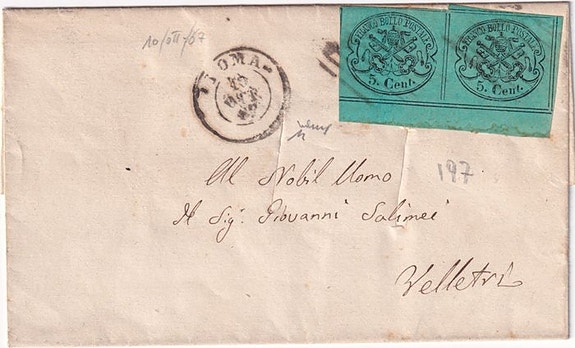 10/ott/67
ROMA
10
OTT
67
FRANCO BOLLO POSTALE
5 Cent.
FRANCO BOLLO POSTALE
5 Cent.
197
Al Nobil Uomo
Il Sig. Giovanni Salimei
Velletri